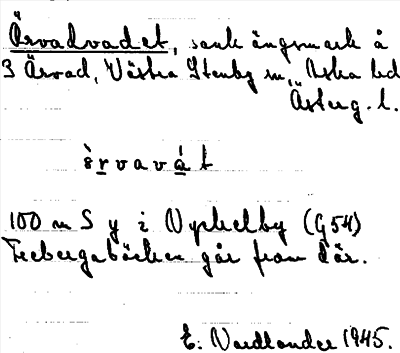 Örvadvadet, sank ängsmark å
3 Ärvad, Västra Stenby sn, Aska hd
Österg. l.
ö̀rvavát
100 m S y i Nyckelby (G54)
Frebergabäcken går fram där.
E. Nordlander 1945.